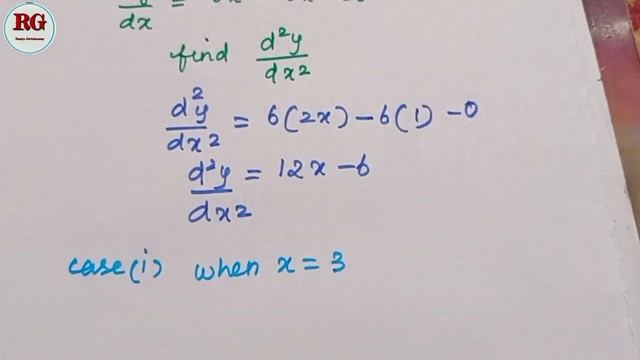 RG
dy/dx =
find d²y/dx2
d²y/dx2 = 6(2x) - 6(1) - 0
d²y/dx2 = 12x - 6
case(i) when x = 3